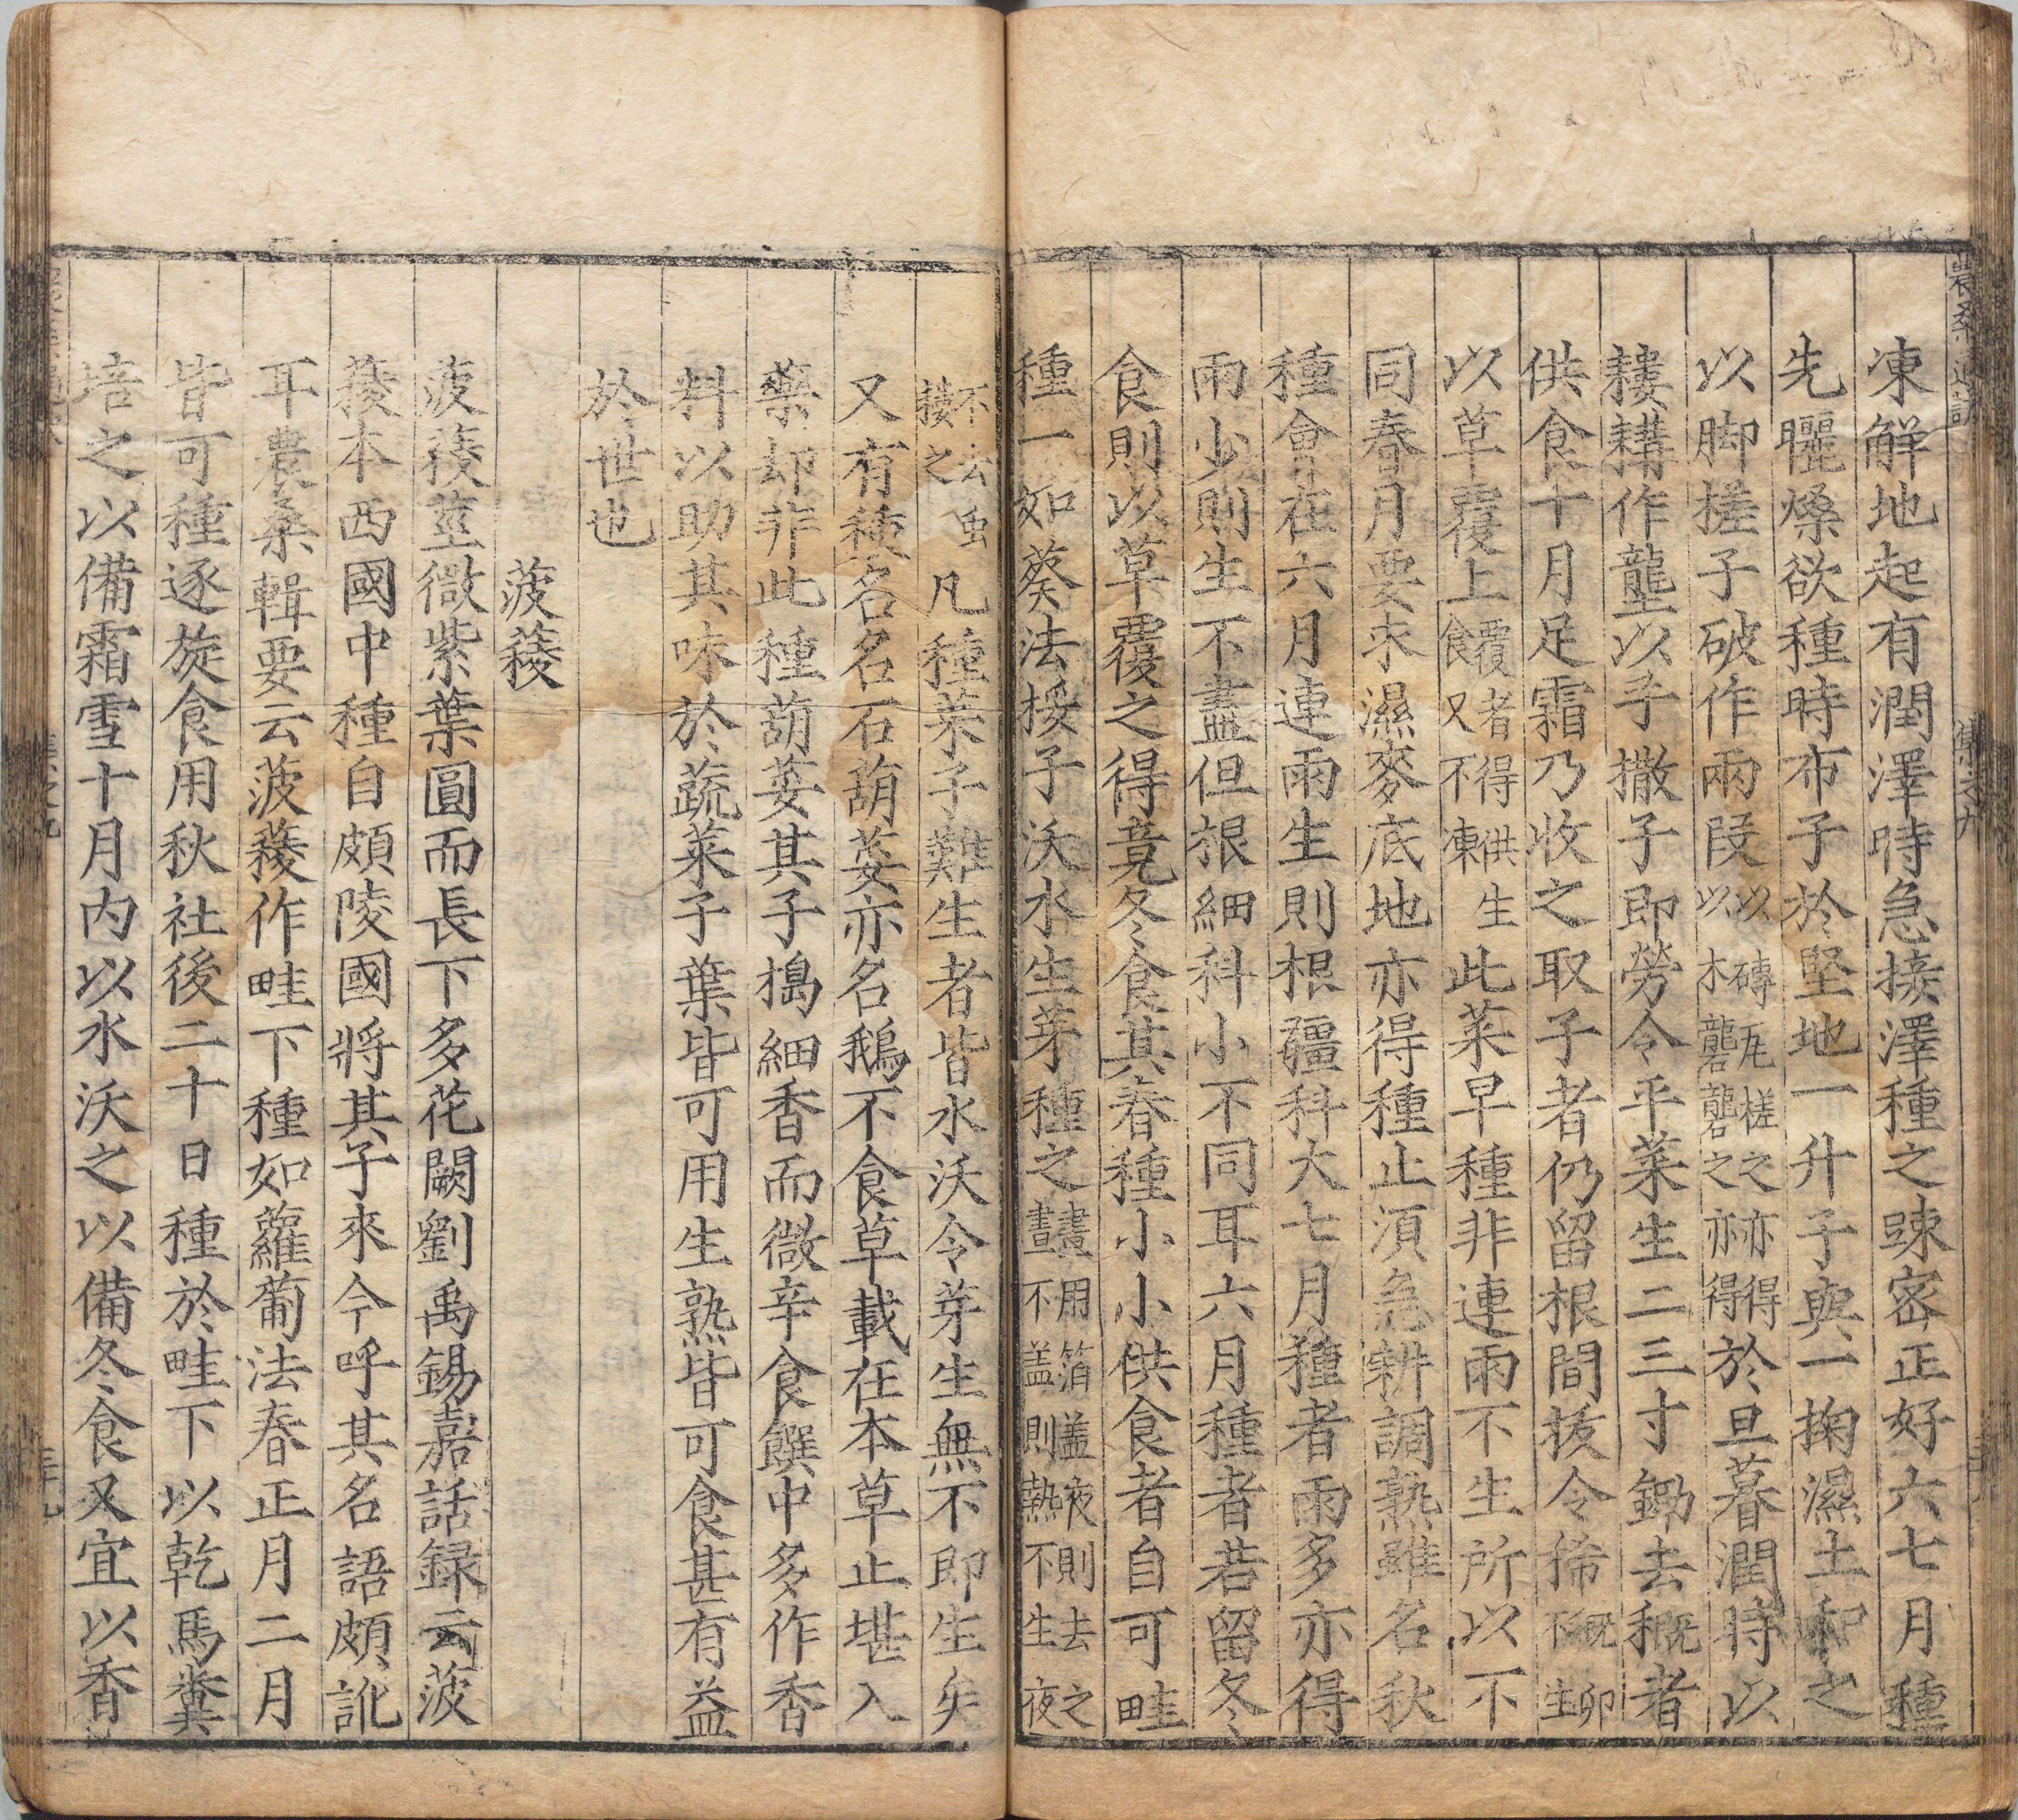 凍解地起有潤澤時急接澤種之踈密正好六七月種
先曬燥欲種時布子於堅地一升子與一掬濕土和之
以脚搓子破作兩段以磚瓦搓之亦得以木礲礲之亦得於旦暮潤時以
耬耩作壟以手撒子即勞令平菜生二三寸鋤去穊者
供食十月足霜乃收之取子者仍留根間拔令稀穊卯不生
以草覆上覆者得供生食又不凍此菜早種非連雨不生所以不
同春月要求濕麥底地亦得種止須急耕調熟雖名秋
種會在六月連雨生則根疆科大七月種者雨多亦得
雨少則生不盡但根細科小不同耳六月種者若留冬
食則以草覆之得竟冬食其春種小小供食者自可畦
種一如葵法挼子沃水生芽種之晝用箔盖夜則去之晝不盖則熱不生夜
不去虫摟之凡種菜子難生者皆水沃令芽生無不即生矣
又有種名名石葫荽亦名鵝不食草載在本草止堪入
藥却非此種葫荽其子搗細香而微辛食饌中多作香
料以助其味於蔬菜子葉皆可用生熟皆可食甚有益
於世也
菠薐
菠薐莖微紫葉圓而長下多花闕劉禹錫嘉話録云菠
薐本西國中種自頗陵國將其子來今呼其名語頗訛
耳農桑輯要云菠薐作畦下種如蘿蔔法春正月二月
皆可種逐旋食用秋社後二十日種於畦下以乾馬糞
培之以備霜雪十月内以水沃之以備冬食又宜以香